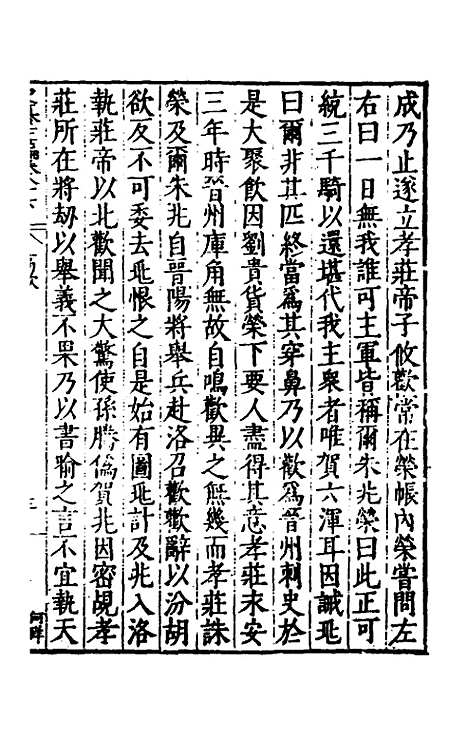 成乃止遂立孝莊帝子攸歡常在榮帳內榮嘗問左
右曰一日無我誰可主軍皆稱爾朱兆榮曰此正可
統三千騎以還堪代我主衆者唯賀六渾耳因誡兆
曰爾非其匹終當爲其穿鼻乃以歡爲晉州刺史於
是大聚飲因劉貴貨榮下要人盡得其意孝莊末安
三年時晉州庫角無故自鳴歡異之無幾而孝莊誅
榮及爾朱兆自晉陽將舉兵赴洛召歡歡辭以汾胡
欲反不可委去兆恨之自是始有圖兆計及兆入洛
執莊帝以北歡聞之大驚使孫騰僞賀兆因密覘孝
莊所在將劫以舉義不果乃以書喻之言不宜執天